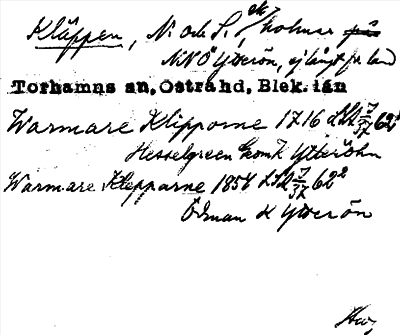 Kläppen, N. och S., sk/holmar på
NNÖ Ytterön, ej långt fr. land
Torhamns sn, Östra hd, Blek. län
Warmare Klipporne 1716 LSA 7/37 62¹
Hesselgreen Geom K Ytteröhn
Warmare Klepparne 1854 LSA 7/37 62²
Ödman K Ytterön